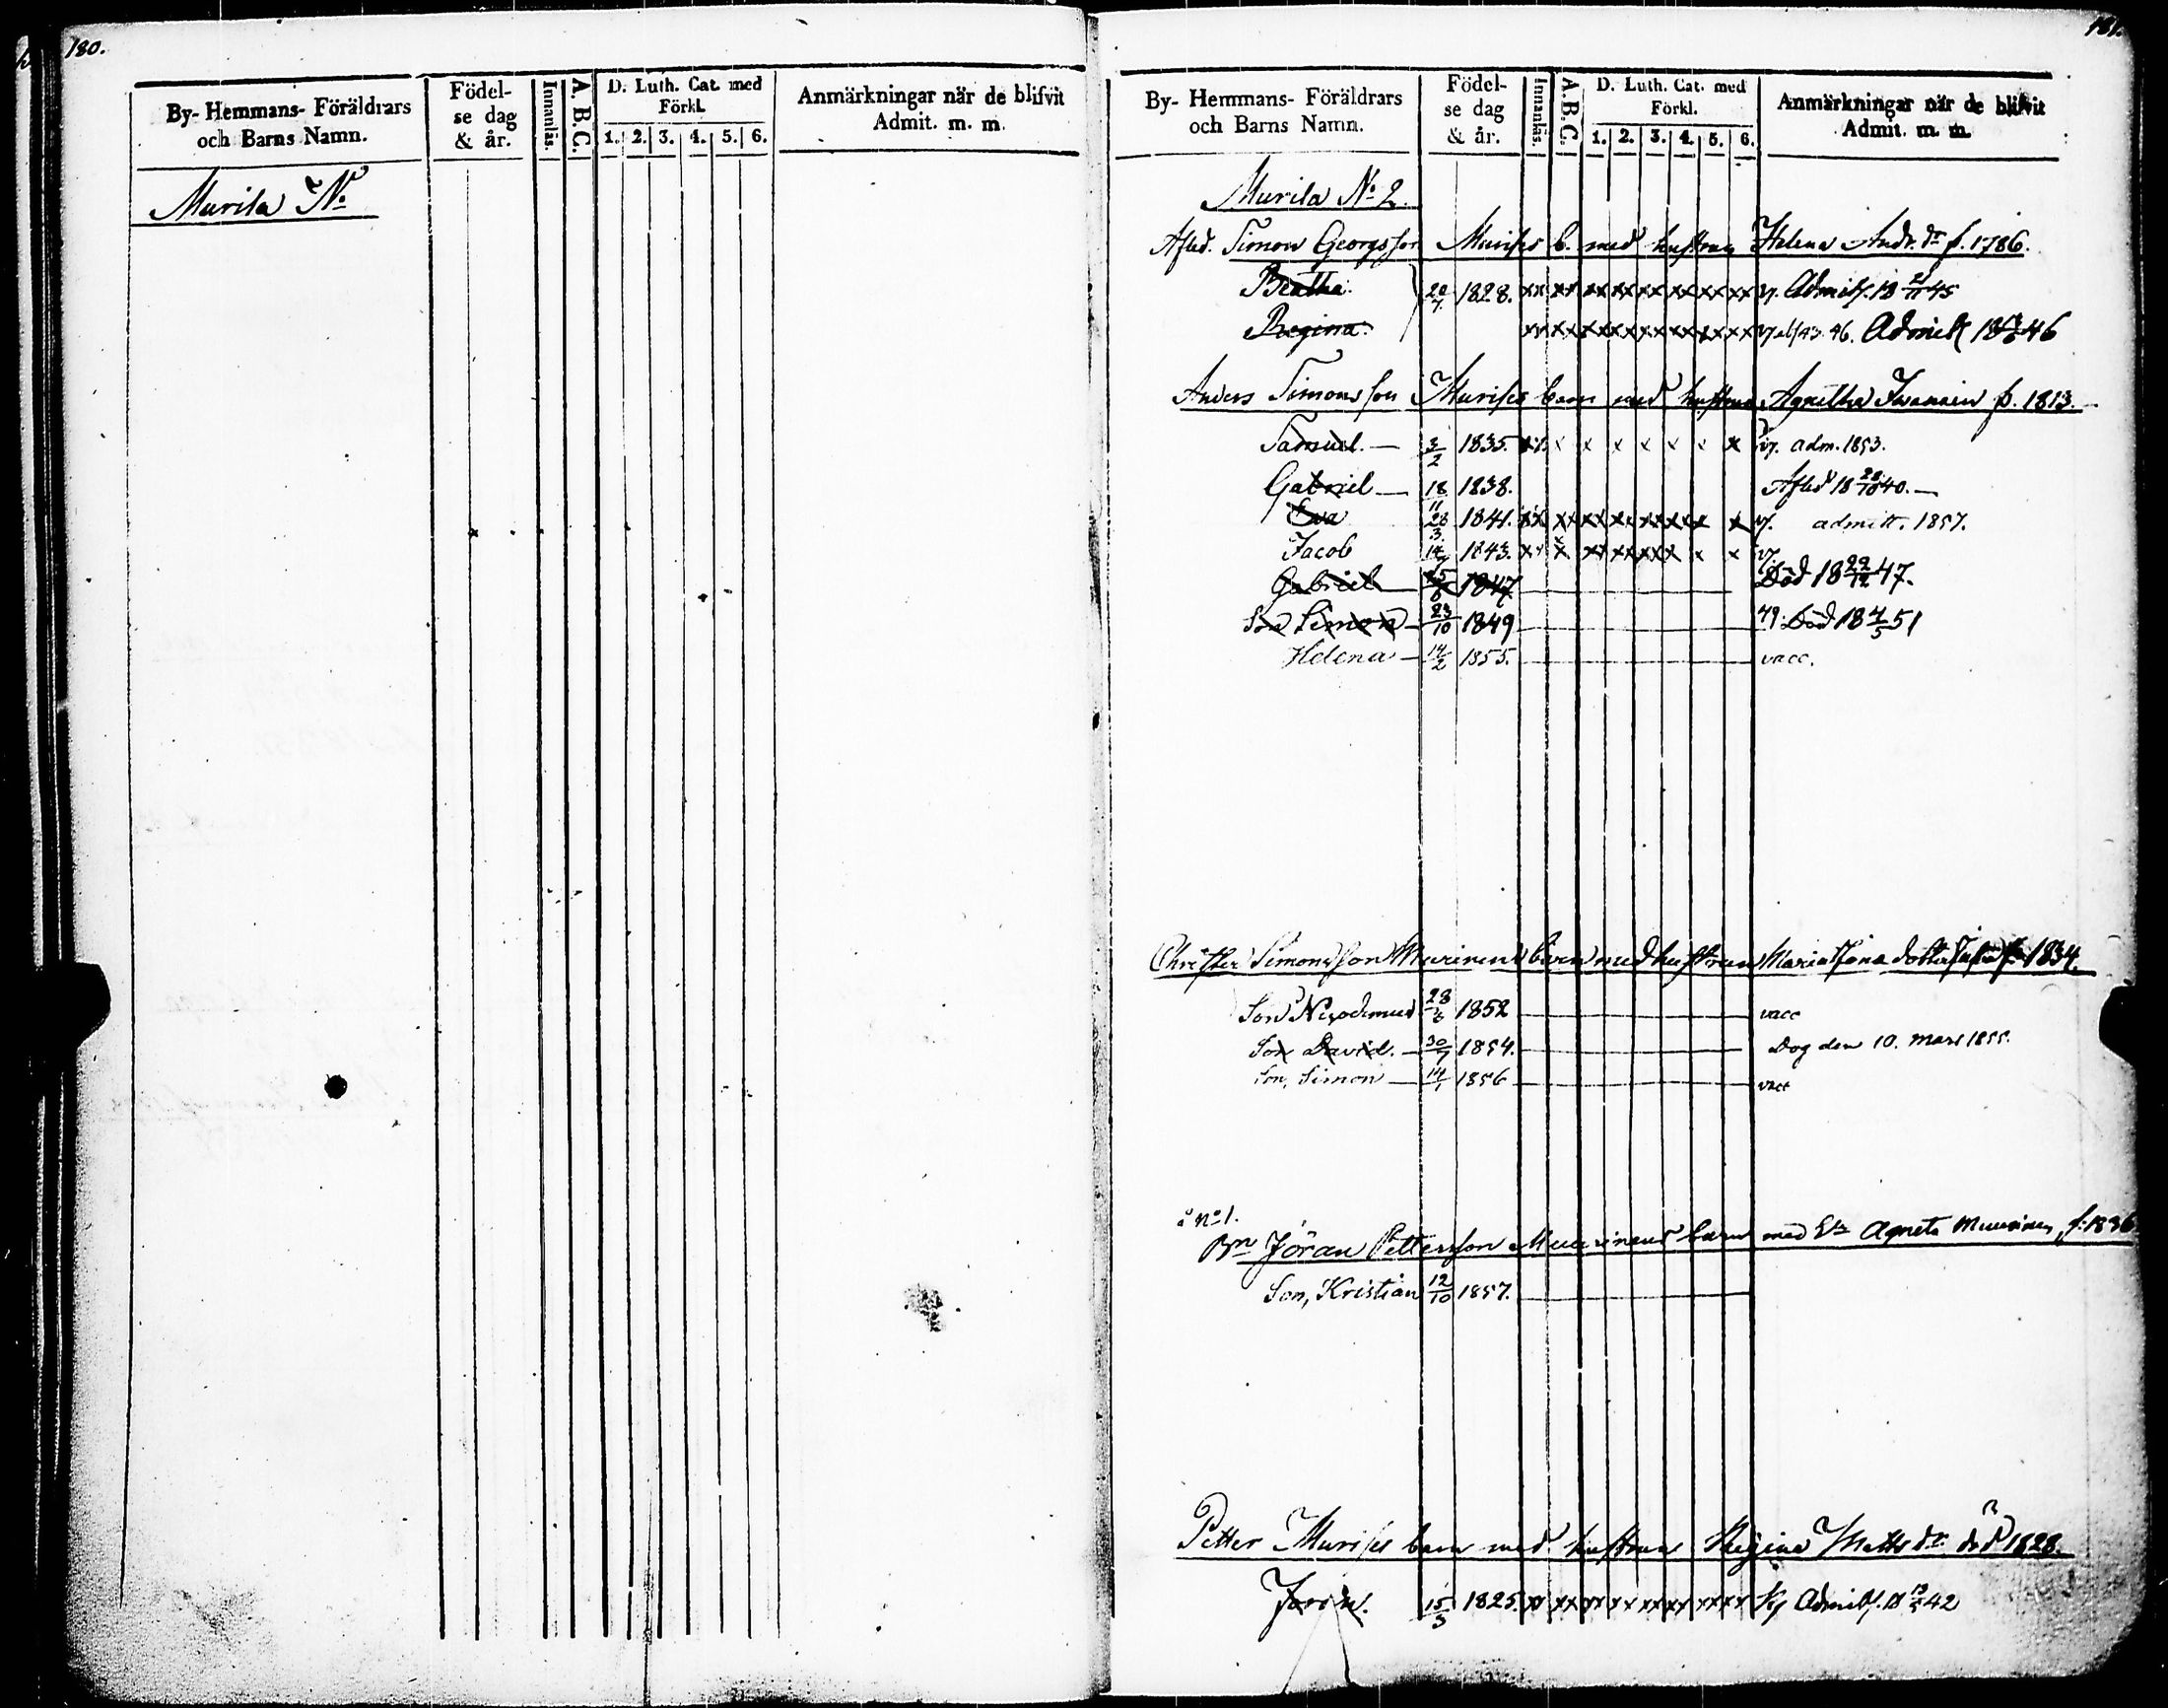 180.
By- Hemmans- Föräldrars och Barns Namn.
Födelse dag & år.
Innanläs.
A. B. C.
D. Luth. Cat. med Förkl.
1. 2. 3. 4. 5. 6.
Anmärkningar när de blifvit Admit. m. m.
Murila No
181.
By- Hemmans- Föräldrars och Barns Namn.
Födelse dag & år.
Innanläs.
A. B. C.
D. Luth. Cat. med Förkl.
1. 2. 3. 4. 5. 6.
Anmärkningar när de blifvit Admit. m. m.
Murila No 2.
Afled. Simon Georgsson Murises b. med hustrun Helena Andr. dr f. 1786.
Beatha. 20/7 1828. xx xx xx xx xx xx xx xx v. Admitt. 18 21/11 45
Regina. xx xx xx xx xx xx xx xx 46. Admitt 46
Anders Simonsson Murises barn med hustrun Agnetha Iwanain f. 1813.
Samuel. — 3/2 1835. xx x x x x x x x v. adm. 1853.
Gabriel — 18/11 1838. Afled 18 28/10 40. —
Eva 28/3 1841. xx xx xx xx xx xx x v. admitt. 1857.
Jacob 1843. xx x xx xx xx x x v.
Gabriel 1847 Död 18 29/12 47.
Son Simon — 23/10 1849 Död 18 4/5 51
Helena — 14/2 1855. vacc.
Christer Simonsson Murinens barn med hustrun Maria dotter f. 1834.
Son Nicodemus 28/6 1852 vacc
Son David. — 30/7 1854. Dog den 10. Mars 1855.
Son, Simon — 14/1 1856 vacc
i No 1.
Jöran Pettersson Muurinens barn med Agneta Muurinen, f. 1836
Son, Kristian 12/10 1857.
Petter Murises barn med hustrun Regina Matts dr. död 1828.
Jöran. 15/3 1825. xx xx xx xx xx xx xx xx Admitt. 42